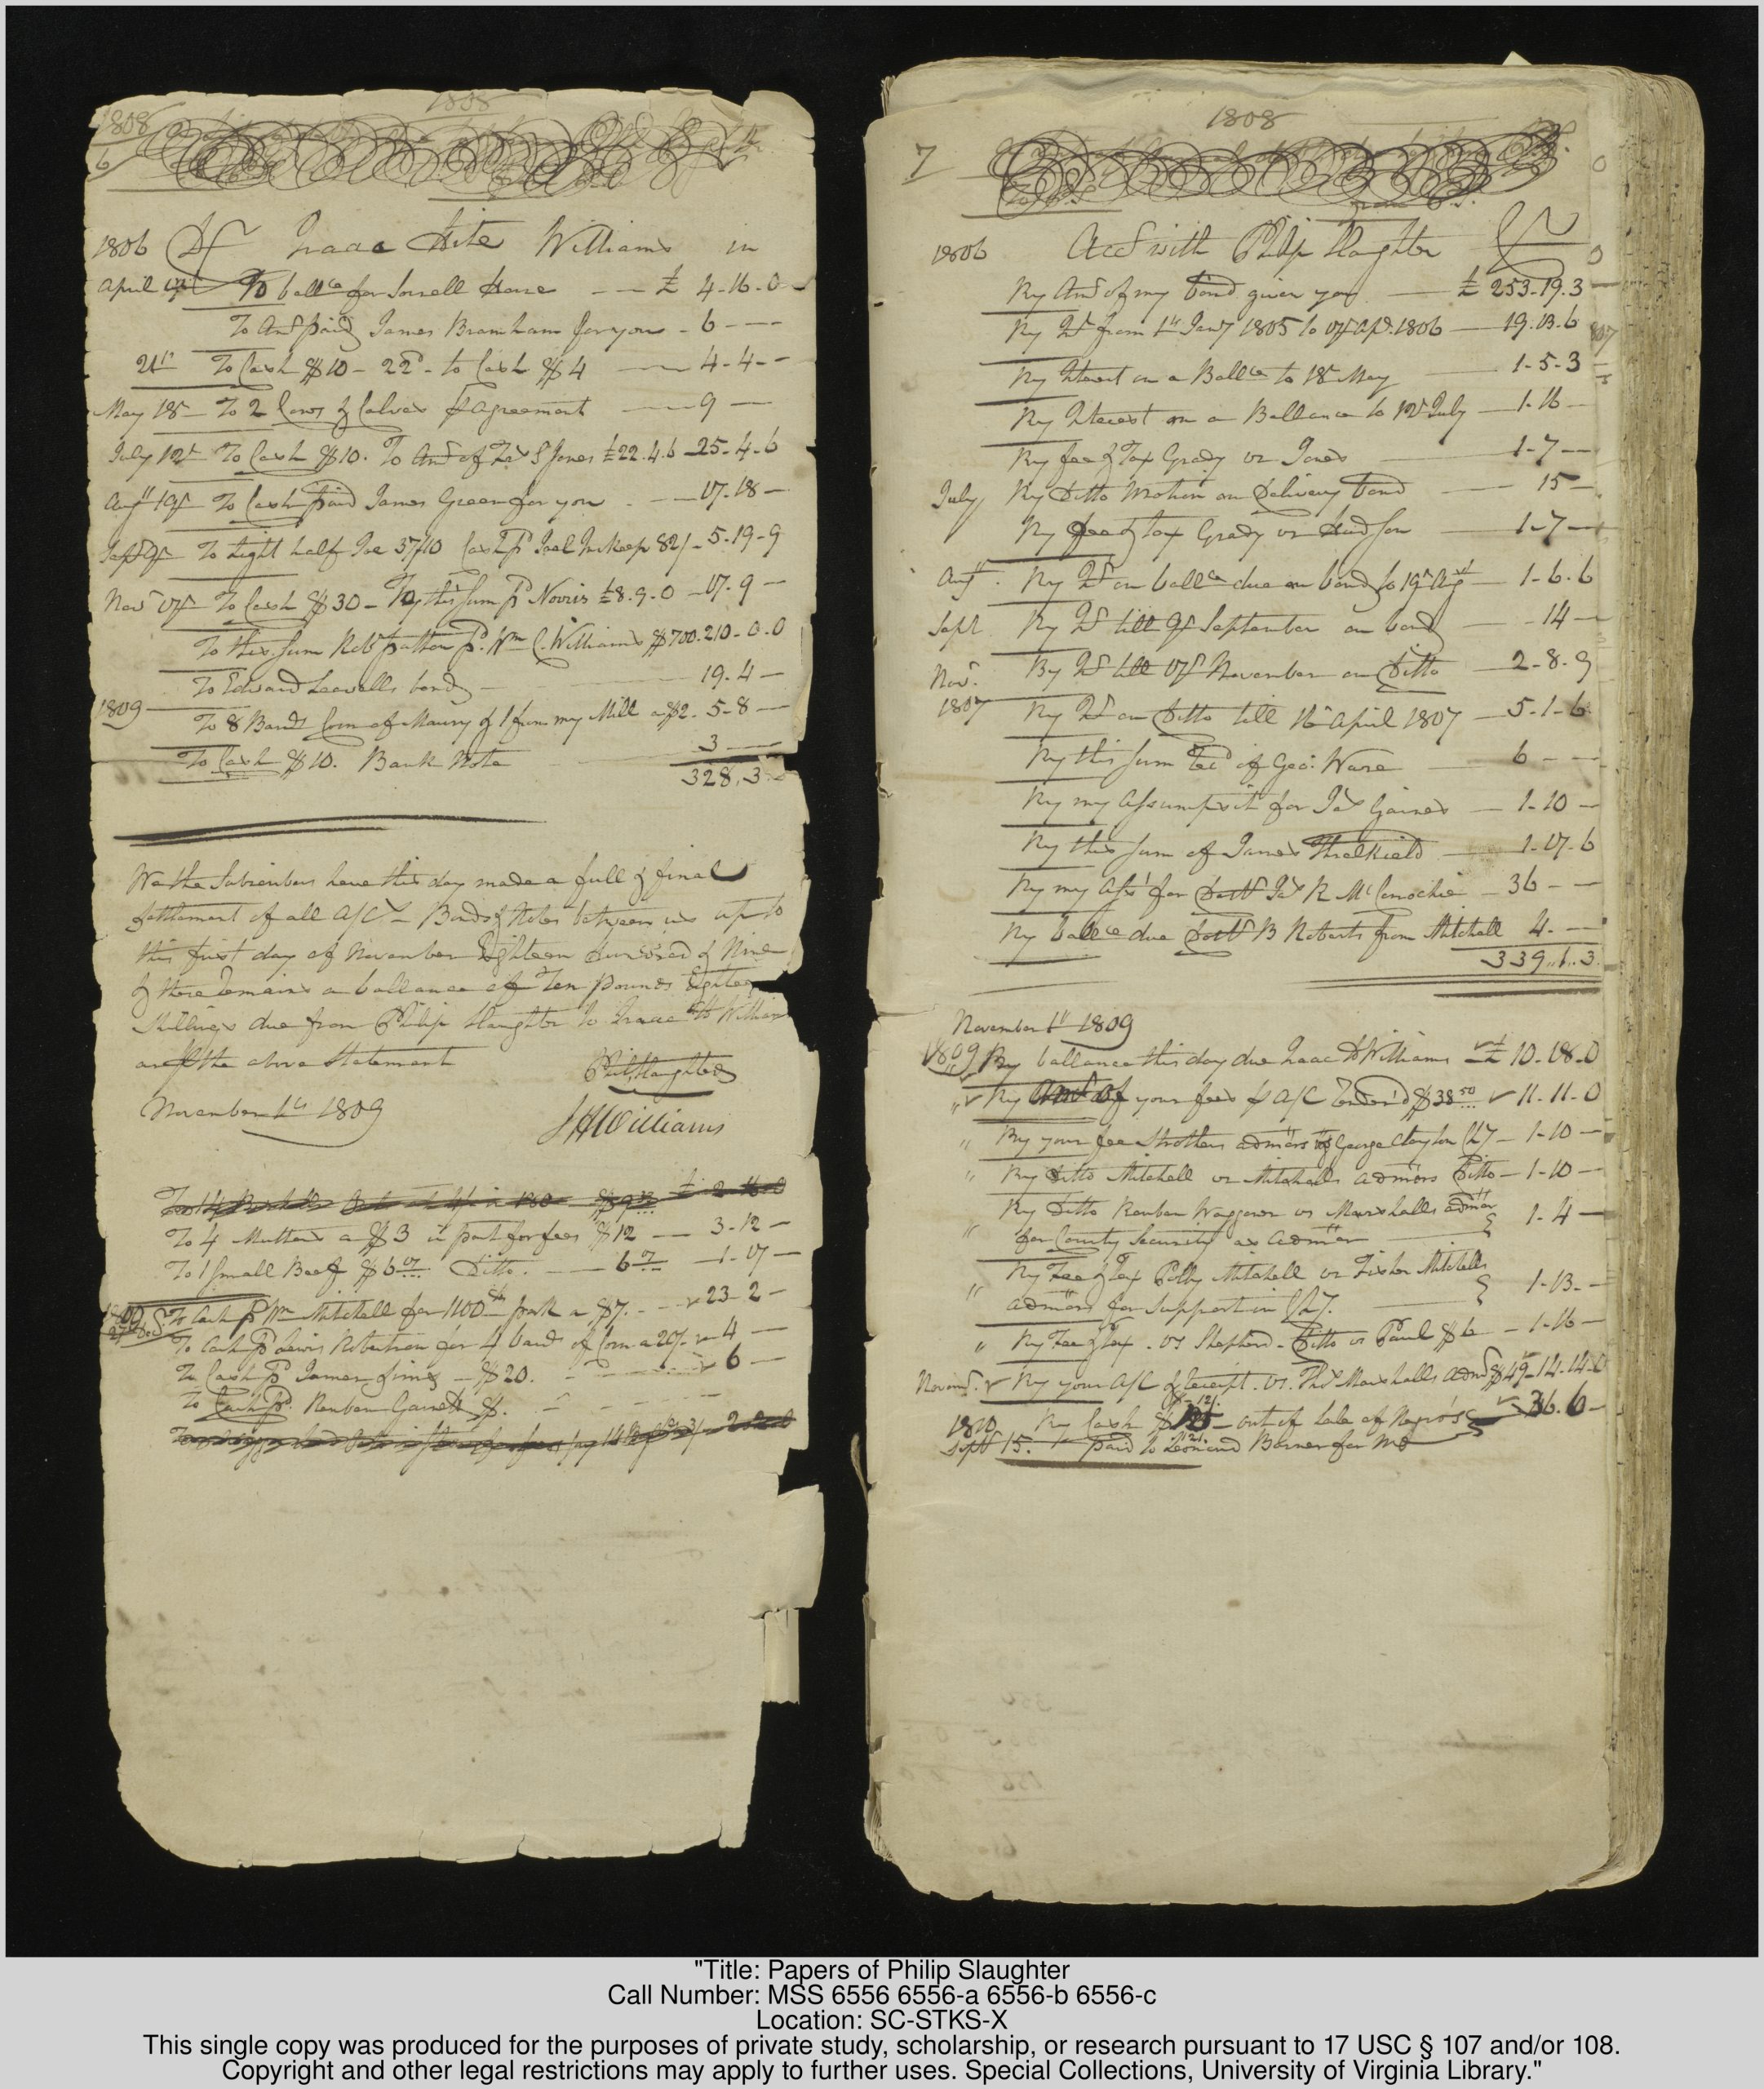 1808
1808
6
1806 Dr Isaac Hite Williams in
April To ballce for Sorrell Horse £ 4-16-0
To Amt paid James Bramham for you - 6 - -
21st To Cash $10 - 22d - to Cash $4 4-4--
May 18th To 2 Cows & Calves p agreement 9 -
July 12th To Cash $10. To Amt of Jas S Jones £22.4.6 - 25-4-6
Augt 19th To Cash paid James Green for you - 17-18-
Sept 9th To Eight half Joe 37/10 Cash pd Joel 82/- 5-19-9
Novr 17th To Cash $30 - To this sum pd Norris £8.9.0 - 17.9 -
To this sum Robt Patton pd Wm C. Williams $700. 210-0.0
To Edward Leavells bond 19.4 -
1809 To 8 Barrls Corn of Maury & 1 from my Mill a $2. 5-8 -
To Cash $10. Bank Note 3 -
328.3 -
We the Subscribers have this day made a full & final
settlement of all A/Cs Bonds & Notes between us up to
this first day of November Eighteen Hundred & Nine
& there remains a ballance of Ten pounds Eighteen
Shillings due from Philip Slaughter to Isaac H Williams
as p the above Statement
Phil Slaughter
November 1st 1809
I H Williams
To 4 Muttons a $3 in part for fees $12 - 3-12-
To 1 Small Beef $6 17 Ditto. 6 17 - 1-17-
1809 To Cash pd Wm Mitchell for 1100 pork a $7. 23-2-
To Cash pd Lewis Robertson for 4 barrls of Corn a 20/- 4 -
To Cash pd James Sims - $20. 6 -
To Cash pd. Reuben Garnett $.
1808
7
1806 Acct with Philip Slaughter Cr
By Amt of my bond given you £ 253.19.3
By Int from 1st Jany 1805 to 17th Apl. 1806 19.13.6
By Interest on a Ballce to 18th May 1-5-3
By Interest on a Ballance to 12th July 1-16-
By fee & Tax Grady vs Jones 1-7--
July By Ditto Motion on Delivery bond 15-
By fee & tax Grady vs Hudson 1-7-
Augt. By Int on ballce due on bond to 19th Augt 1-6.6
Sept By Int till 9th September on bond 14-
Novr. By Int till 17th November on Ditto 2-8.9
1807 By Int on Ditto till 16th April 1807 5-1-6
By this sum recd of Geo. Ware 6 - -
By my assumpsit for Jas Gaines 1-10-
By this sum of James Threlkield 1-17-6
By my Asst for Jas R McConochie - 36 - -
By ballce due B Roberts from Mitchell 4. -
339..1..3
November 1st 1809
1809 By ballance this day due Isaac H Williams £ 10-18-0
By Amt of your fees p A/C Render'd $38 50 11-11-0
" By your fee Strothers admors of George Clayton Chy - 1-10-
" By Ditto Mitchell vs Mitchells admors Ditto - 1-10-
By Ditto Reuben Waggoner vs Marshalls admor
" for County Security as Admor 1-4-
" By Fee & Tax Polly Mitchell vs Fisher Mitchells
admors for Support in Chy. 1-13.-
" By Fee & Tax. vs Shepherd - Ditto vs Paul $6 - 1-16-
Novemr. By your A/C & receipt. vs. Thos Marshalls Admr $49-14-14-0
1810 By Cash $121 - out of Sale of Negro's 36.6-
Sept 15. paid to Leonard Barnes for me
"Title: Papers of Philip Slaughter
Call Number: MSS 6556 6556-a 6556-b 6556-c
Location: SC-STKS-X
This single copy was produced for the purposes of private study, scholarship, or research pursuant to 17 USC § 107 and/or 108.
Copyright and other legal restrictions may apply to further uses. Special Collections, University of Virginia Library."